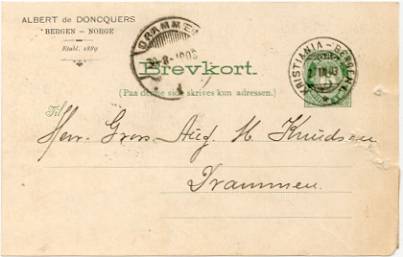 ALBERT de DONCQUERS
BERGEN - NORGE
Etabl. 1889
DRAMMEN
Brevkort.
(Paa denne side skrives kun adressen.)
KRISTIANIA - BERGEN
Til
Herr Gros. Aug. H. Knudsen
Drammen.